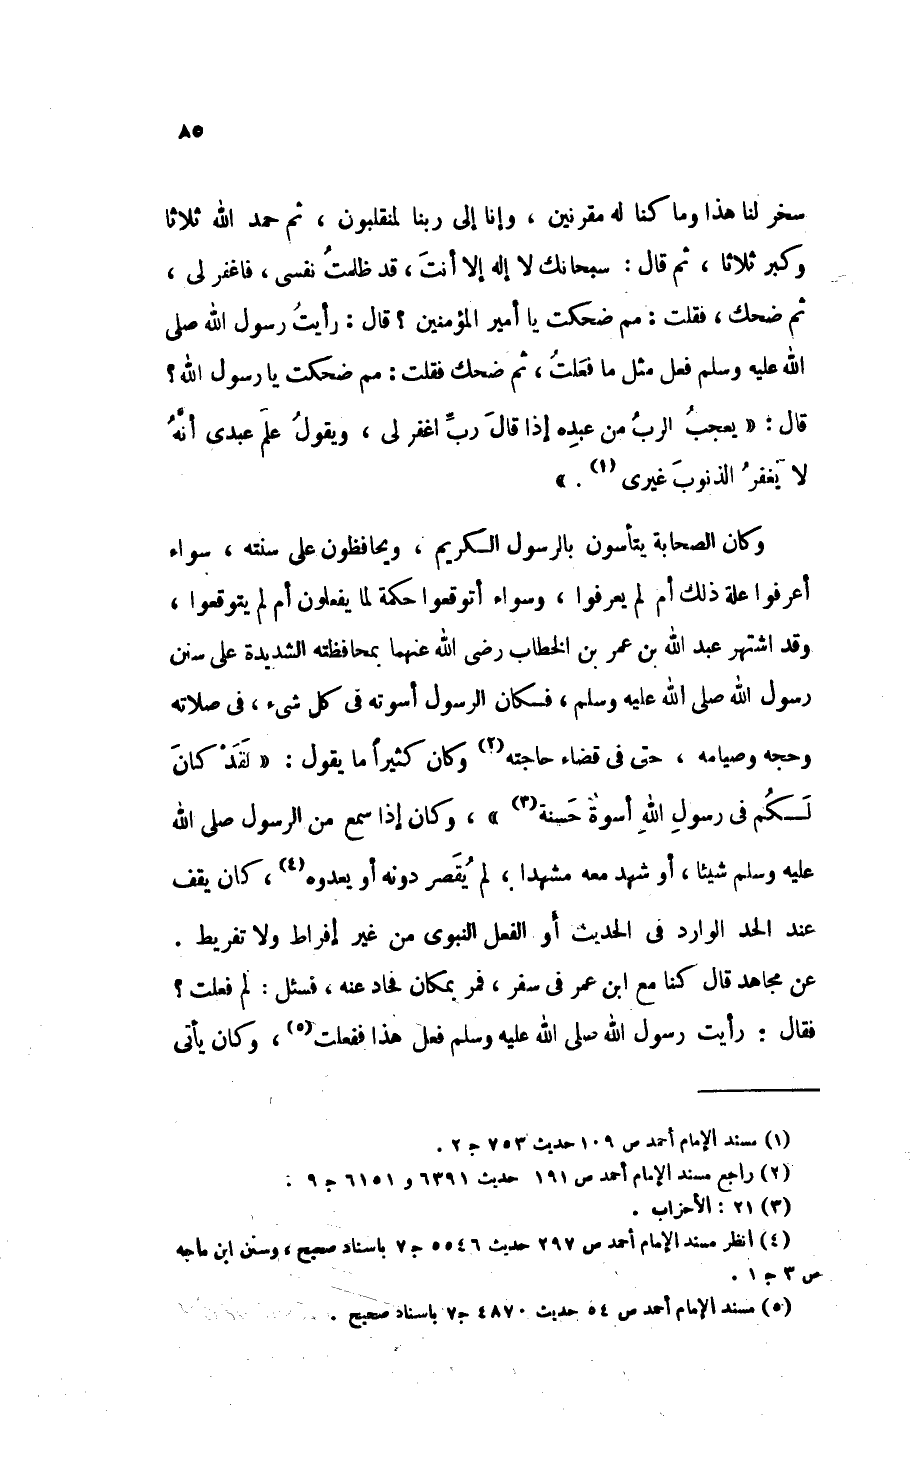 ٨٥
سخر لنا هذا وما كنا له مقرنين ، وإنا إلى ربنا لمنقلبون ، ثم حمد الله ثلاثا
وكبر ثلاثا ، ثم قال : سبحانك لا إله إلا أنتَ ، قد ظلمتُ نفسى ، فاغفر لى ،
ثم ضحك ، فقلت : مم ضحكت يا أمير المؤمنين ؟ قال : رأيتُ رسول الله صلى
الله عليه وسلم فعل مثل ما فعَلتُ ، ثم ضحك فقلت : مم ضحكت يا رسول الله ؟
قال : « يعجبُ الربُ من عبدِه إذا قالَ ربِّ اغفر لى ، ويقولُ علمَ عبدى أنَّهُ
لا يَغفرُ الذنوبَ غيرى (١) . »
وكان الصحابة يتأسون بالرسول الكريم ، ويحافظون على سنته ، سواء
أعرفوا علة ذلك أم لم يعرفوا ، وسواء أتوقعوا حكمة لما يفعلون أم لم يتوقعوا ،
وقد اشتهر عبد الله بن عمر بن الخطاب رضى الله عنهما بمحافظته الشديدة على سنن
رسول الله صلى الله عليه وسلم ، فكان الرسول أسوته فى كل شىء ، فى صلاته
وحجه وصيامه ، حتى فى قضاء حاجته (٢) وكان كثيراً ما يقول : « لَقَدْ كانَ
لَكُم فى رسولِ اللهِ أسوةٌ حَسنة (٣) » ، وكان إذا سمع من الرسول صلى الله
عليه وسلم شيئا ، أو شهد معه مشهدا ، لم يُقَصر دونه أو يعدوه (٤) ، كان يقف
عند الحد الوارد فى الحديث أو الفعل النبوى من غير إفراط ولا تفريط .
عن مجاهد قال كنا مع ابن عمر فى سفر ، فمر بمكان فحاد عنه ، فسئل : لم فعلت ؟
فقال : رأيت رسول الله صلى الله عليه وسلم فعل هذا ففعلت (٥) ، وكان يأتى
(١) مسند الإمام أحمد ص ١٠٩ حديث ٧٥٣ ج ٢ .
(٢) راجع مسند الإمام أحمد ص ١٩١ حديث ٦٣٩١ و ٦١٥١ ج ٩ :
(٣) ٢١ : الأحزاب .
(٤) انظر مسند الإمام أحمد ص ٢٩٧ حديث ٥٥٤٦ ج ٧ باسناد صحيح ، وسنن ابن ماجه
ص ٣ ج ١ .
(٥) مسند الإمام أحمد ص ٥٤ حديث ٤٨٧٠ ج ٧ باسناد صحيح .